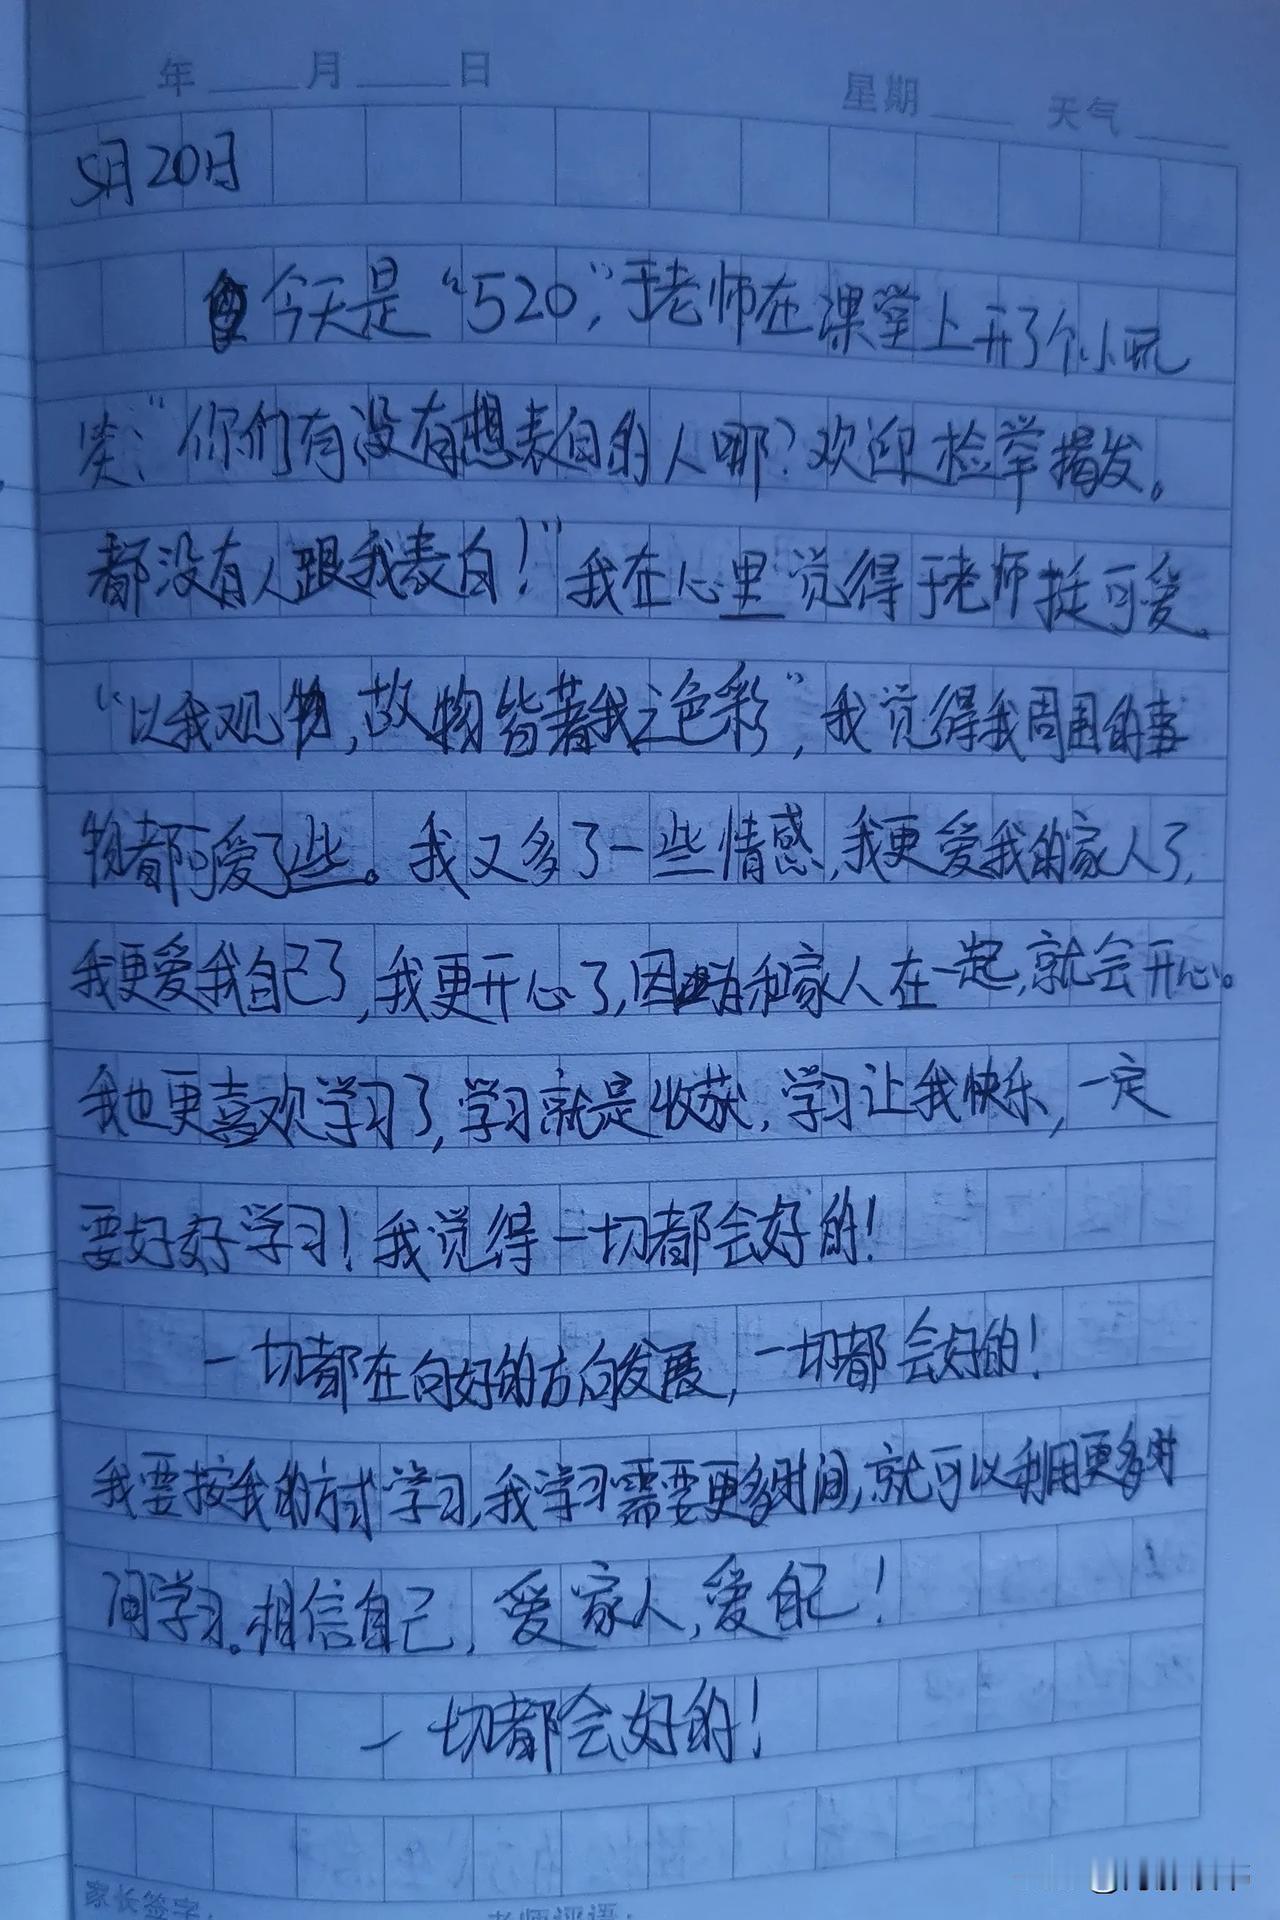 年 月 日 星期 天气
5月20日
今天是“520”，于老师在课堂上开了个小玩
笑：“你们有没有想表白的人哪？欢迎检举揭发。
都没有人跟我表白！”我在心里觉得于老师挺可爱。
“以我观物，故物皆著我之色彩”，我觉得我周围的事
物都可爱了些。我又多了一些情感，我更爱我的家人了，
我更爱我自己了，我更开心了，因为和家人在一起，就会开心。
我也更喜欢学习了，学习就是收获，学习让我快乐，一定
要好好学习！我觉得一切都会好的！
一切都在向好的方向发展，一切都会好的！
我要按我的方式学习，我学习需要更多时间，就可以利用更多时
间学习。相信自己，爱家人，爱自己！
一切都会好的！
家长签字： 老师评语：